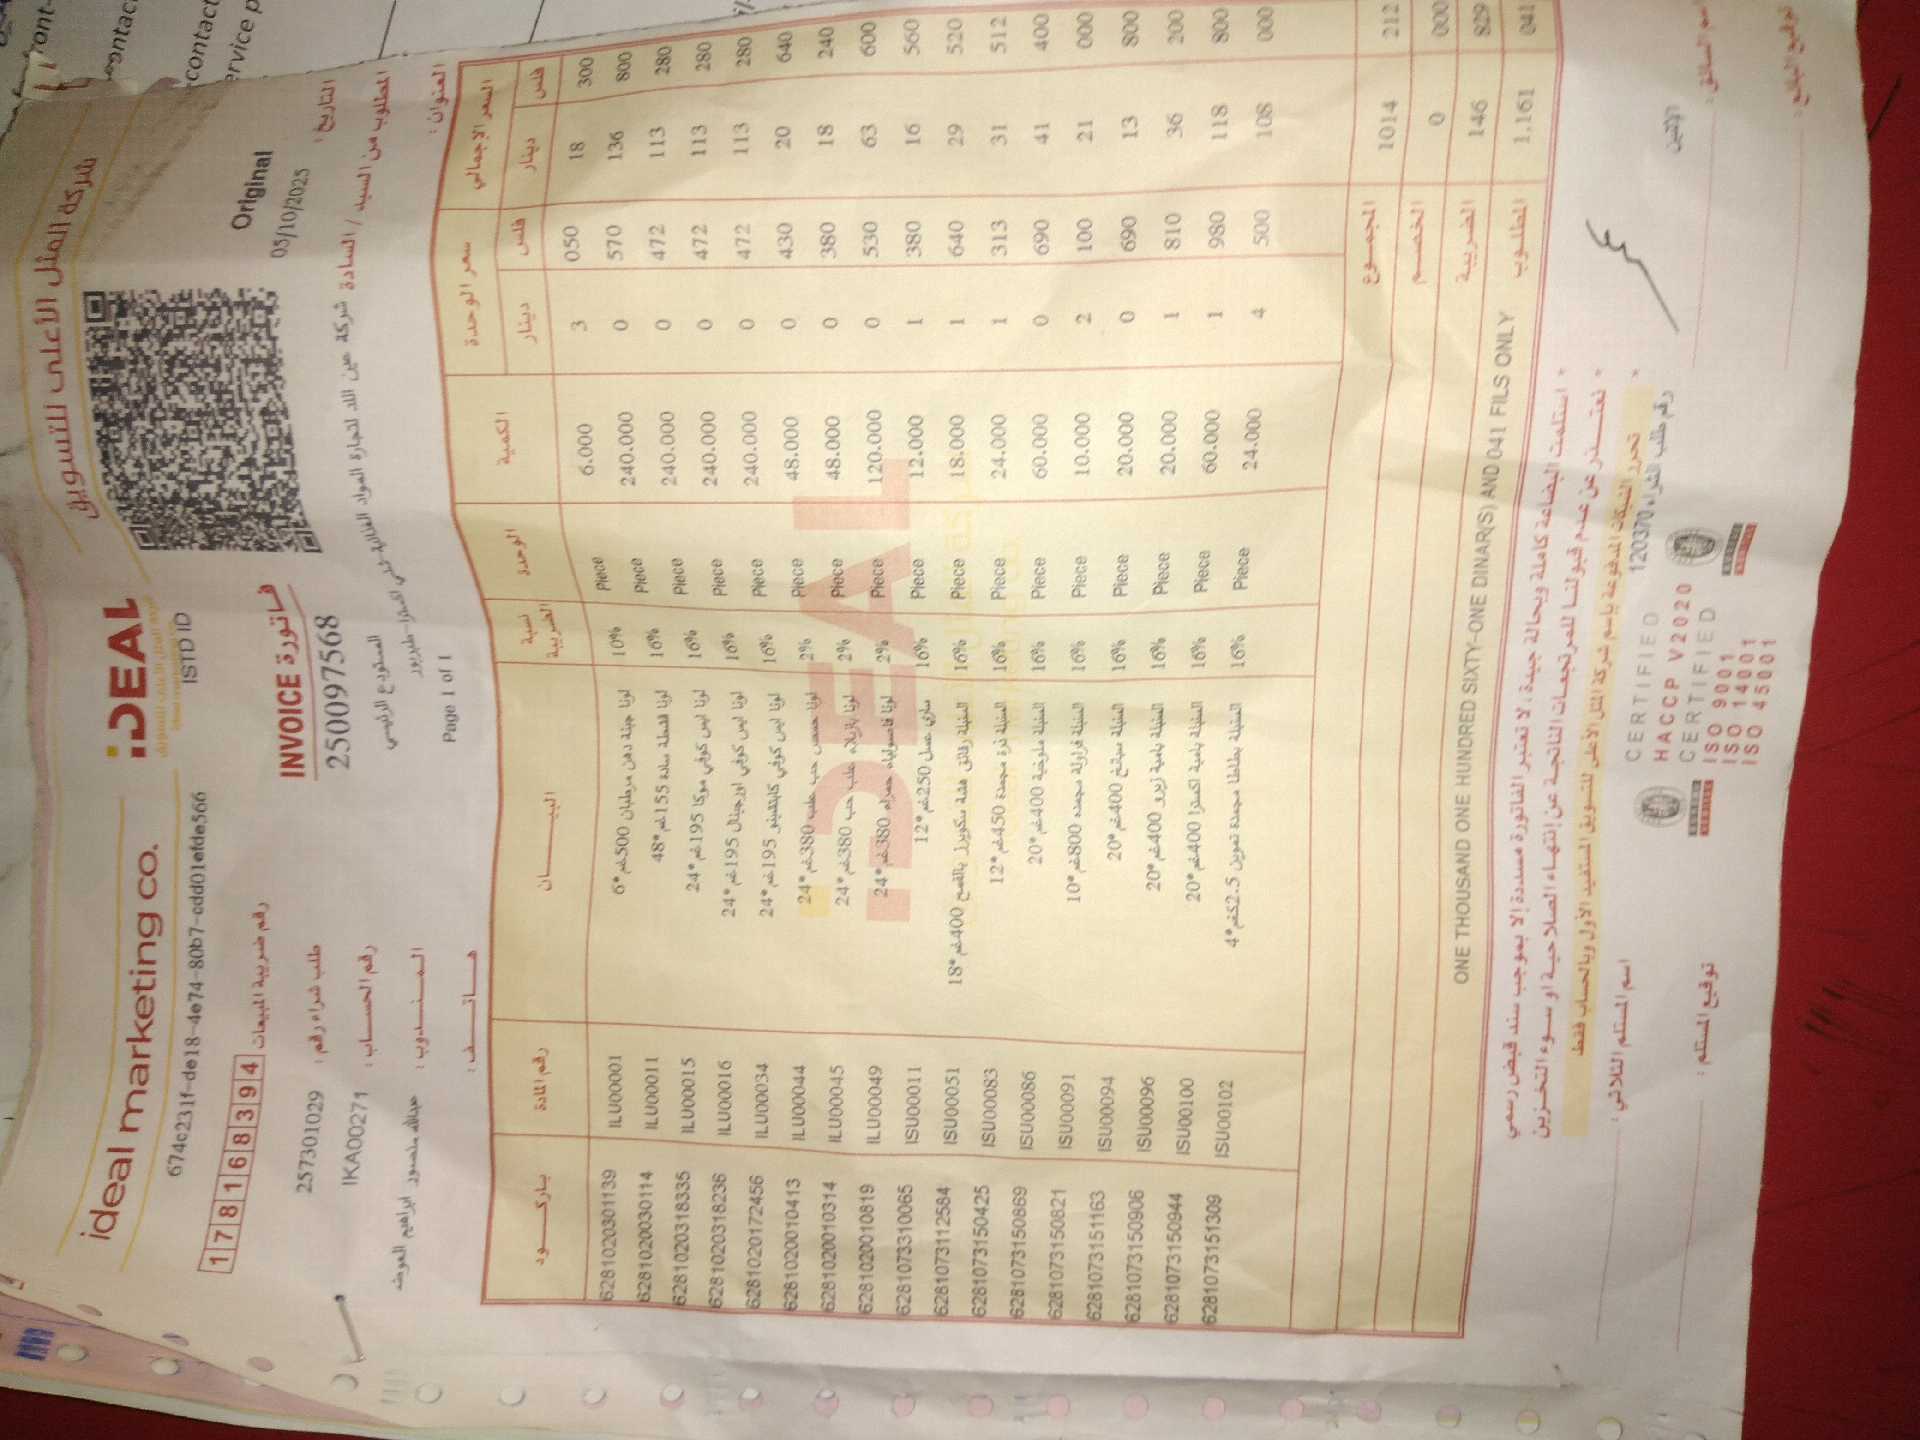 ideal marketing co.
iDEAL
شركة المثل الأعلى للتسويق
674c231f-de18-4e74-80b7-cdd01efde566
ISTD ID
178168394 رقم ضريبة المبيعات
فاتورة INVOICE
Original
طلب شراء رقم : 257301029
2500097568
التاريخ : 05/10/2025
رقم الحساب : IKA00271
المستودع الرئيسي
المطلوب من السيد / السادة
المندوب : عبدالله منصور ابراهيم العوضه
Page 1 of 1
العنوان :
هاتف :
باركود رقم المادة البيان نسبة الضريبة الوحدة الكمية سعر الوحدة السعر الإجمالي
دينار فلس دينار فلس
6281020301139 ILU00001 لونا جبنة دهن مرطبان 500غم*6 10% Piece 6.000 3 050 18 300
6281020030114 ILU00011 لونا قشطة سادة 155غم*48 16% Piece 240.000 0 570 136 800
6281020318335 ILU00015 لونا ايس كوفي موكا 195غم*24 16% Piece 240.000 0 472 113 280
6281020318236 ILU00016 لونا ايس كوفي اورجينال 195غم*24 16% Piece 240.000 0 472 113 280
6281020172456 ILU00034 لونا ايس كوفي كابتشينو 195غم*24 16% Piece 240.000 0 472 113 280
6281020010413 ILU00044 لونا حمص حب علب 380غم*24 2% Piece 48.000 0 430 20 640
6281020010314 ILU00045 لونا بازيلاء علب حب 380غم*24 2% Piece 48.000 0 380 18 240
6281020010819 ILU00049 لونا فاصولياء حمراء 380غم*24 2% Piece 120.000 0 530 63 600
6281073310065 ISU00011 250غم*12 16% Piece 12.000 1 380 16 560
6281073112584 ISU00051 السنبلة رقائق هشة سكويرز بالقمح 400غم*18 16% Piece 18.000 1 640 29 520
6281073150425 ISU00083 السنبلة ذرة مجمدة 450غم*12 16% Piece 24.000 1 313 31 512
6281073150869 ISU00086 السنبلة ملوخية 400غم*20 16% Piece 60.000 0 690 41 400
6281073150821 ISU00091 السنبلة فراولة مجمده 800غم*10 16% Piece 10.000 2 100 21 000
6281073151163 ISU00094 السنبلة سبانخ 400غم*20 16% Piece 20.000 0 690 13 800
6281073150906 ISU00096 السنبلة بامية زيرو 400غم*20 16% Piece 20.000 1 810 36 200
6281073150944 ISU00100 السنبلة بامية اكسترا 400غم*20 16% Piece 60.000 1 980 118 800
6281073151309 ISU00102 السنبلة بطاطا مجمدة تموين 2.5كغم*4 16% Piece 24.000 4 500 108 000
المجموع 1014 212
الخصم 0 000
الضريبة 146 829
ONE THOUSAND ONE HUNDRED SIXTY-ONE DINAR(S) AND 041 FILS ONLY المطلوب 1.161 041
* استلمت البضاعة كاملة وبحالة جيدة ، لا تعتبر الفاتورة مسددة إلا بموجب سند قبض رسمي
* نعتذر عن عدم قبولنا للمرتجعات الناتجة عن إنتهاء الصلاحية او سوء التخزين
* تحرر الشيكات المدفوعة باسم شركة المثل الأعلى للتسويق المستفيد الأول وبالحساب فقط
اسم المستلم الثلاثي :
رقم طلب الشراء 120370
الإثنين
اسم السائق :
توقيع المستلم :
توقيع البائع :
CERTIFIED
HACCP V2020
CERTIFIED
ISO 9001
ISO 14001
ISO 45001